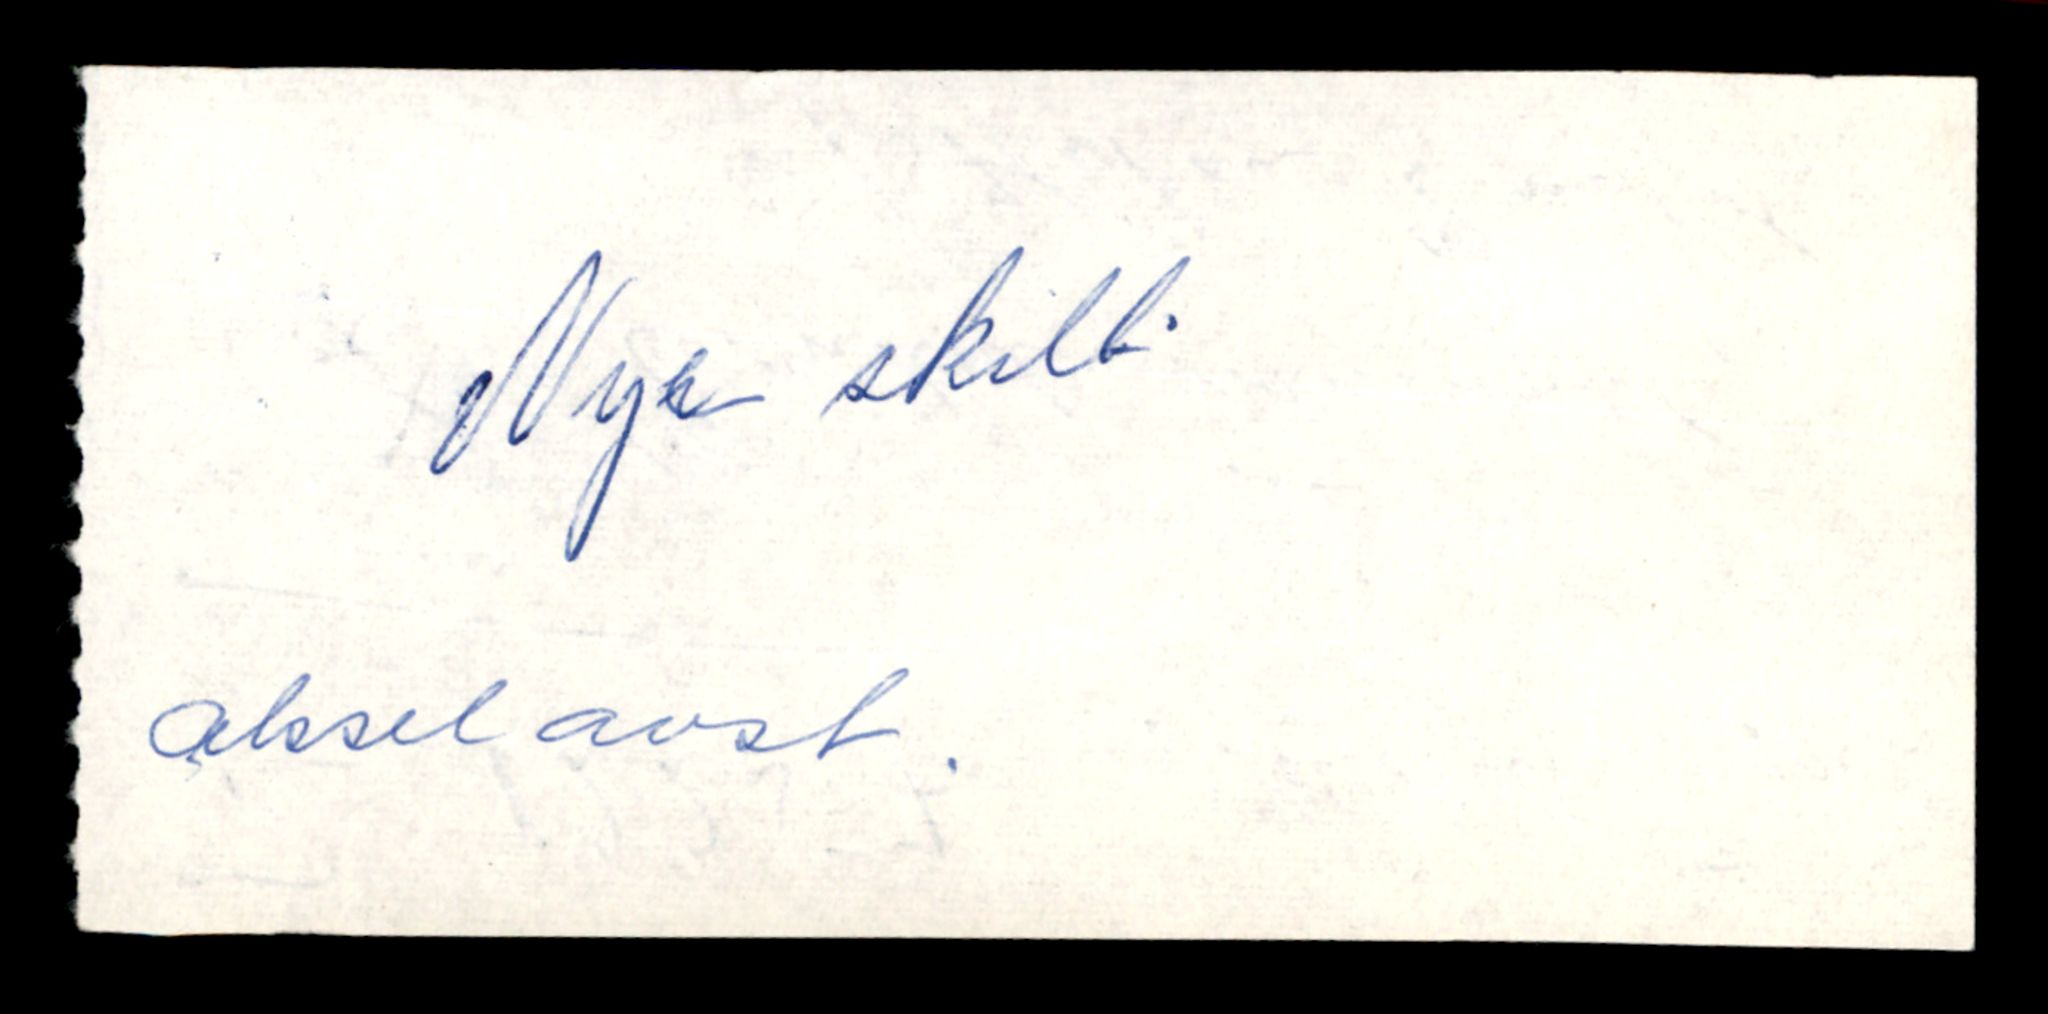 Nye skilt.
aksel avst.